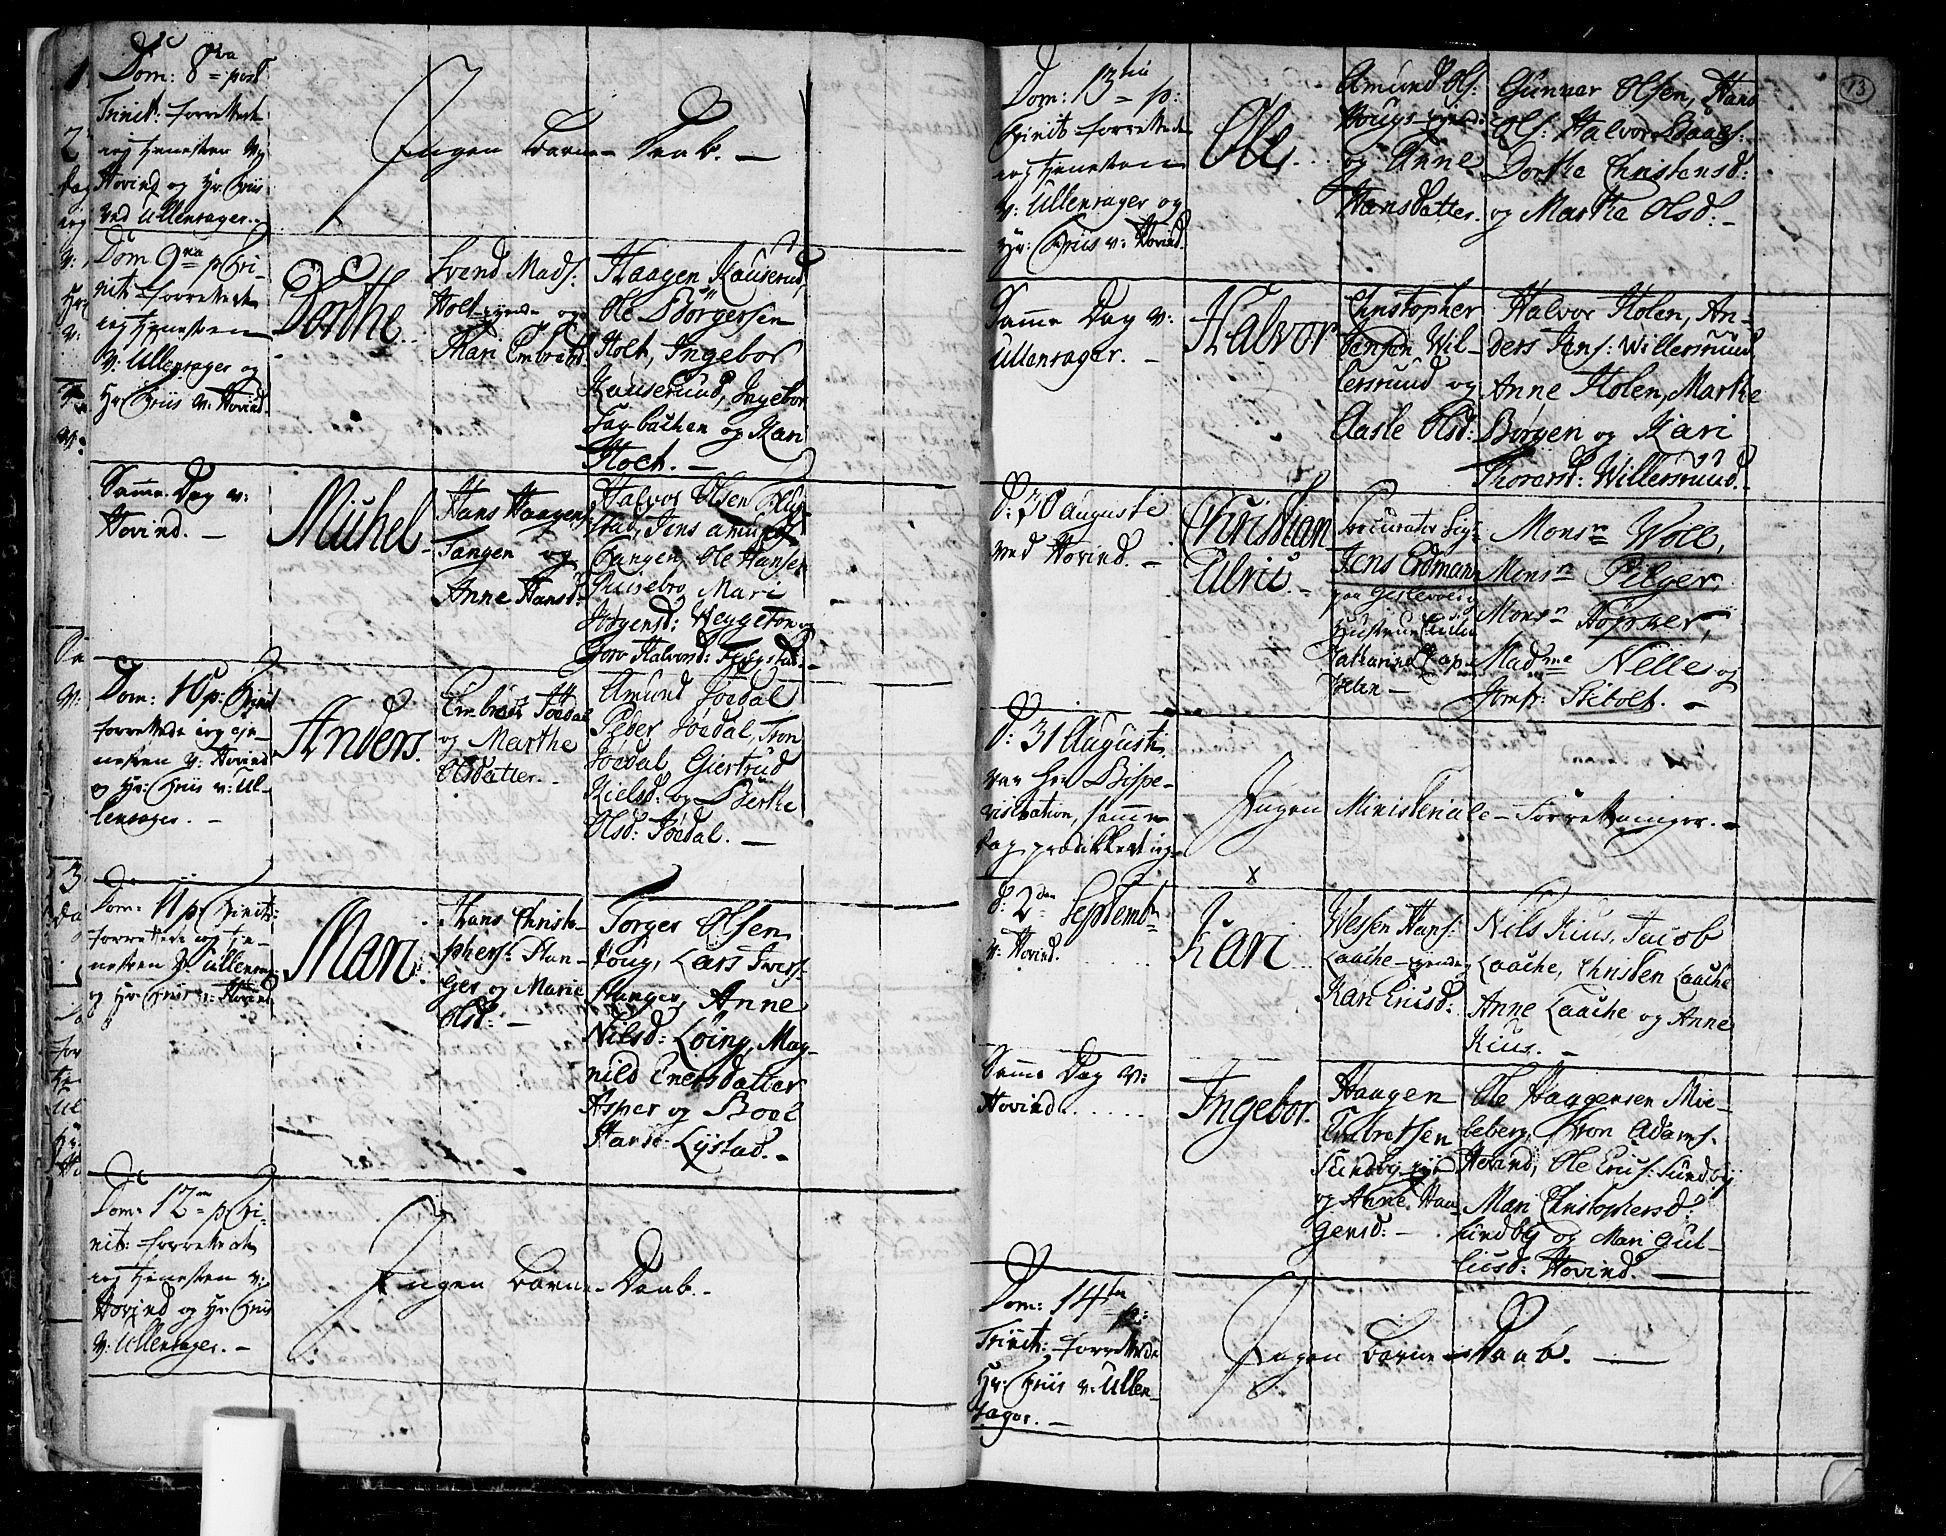 Dom: 8va post
Trinit: forrettede
ieg tienesten v:
Hovind og Hr: Friis
ved Ullensager.
Ingen Barne-Daab. —
Dom 9na p Tri-
nit: forrettede
ieg tienesten
v: Ullensager og
Hr: Friis v: Hovind.
Dorthe.
Svend Mads:
Holt og
Mari Embrets:
Haagen Kauserud,
Ole Børgersen
Holt, Ingebor
Kauserud, Ingebor
Fagbachen og Kari
Holt. —
Samme Dag v:
Hovind. —
Michel
Hans Haagens:
Tangen og
Anne Hansd:
Halvor Olsen
Jens Amunds:
Tangen, Ole Hansen
Mari
Jørgensd: og
Halvorsd:
Dom: 10 p: Trinit
forrettede ieg tie-
nesten v: Hovind
og Hr: Friis v: Ul-
lensager. —
Anders.
Embret Jødal
og Marthe
Olsdatter. —
Amund Jødal
Peder Jødal, Iven
Jødal, Giertrud
Nielsd: og Berthe
Olsd: Jødal. —
Dom: 11 p Trinit:
forrettede ieg tie-
nesten v: Ullensag:
og Hr: Friis v: Hovind
Mari.
Hans Christo-
phers: Han-
ger og Marie
Olsd: —
Torger Olsen
Houg, Lars Ivers:
Hanger, Anne
Nilsd: Løing, Mag-
nild Enersdatter
Asper og Boel
Hansd: Lystad. —
Dom: 12ma p Tri-
nit: forrettede
ieg tienesten v:
Hovind og Hr: Friis
v: Ullensager. —
Ingen Barne-Daab. -
13
Dom: 13tia p:
Trinit: forrettede
ieg tienesten
v: Ullensager og
Hr: Friis v: Hovind.
Ole.
Amund Ols:
Hougs-eyende
og Anne
Hansdatter.
Gunner Olsen, Hans
Ols: Halvor
Dorthe Christensd:
og Marthe Olsd: —
Samme Dag v:
Ullensager. —
Halvor
Christopher
Jensen Wil-
lersruud og
Aasle Olsd:
Halvor Holen, An-
ders Jens: Willersruud
Anne Holen, Marthe
Børgen og Kari
Thorersd: Willersruud. -
D: 30 Auguste
ved Hovind. —
Christian
Ulric. -
Procurator Sigr
Jens Erdmann
paa
Hustrue
Catharine
Monsr Woll,
Monsr Pelger,
Monsr Höpner,
Madme Nelle og
Jomfr: Siebolt. —
D: 31 Augusti
var Hr: Bispe-
visitation, samme
Dag prædikket ieg -
Ingen Ministeriale-Forretninger. —
x
D: 2den Septembr
v: Hovind.
Kari
Wessen Hans:
Laache-eyende og
Kari Ericsd:
Nils Kius, Jacob
Laache, Christen Laache
Anne Laache og Anne
Kius. —
Samme Dag v:
Hovind.
Ingebor.
Haagen
Embretsen
Sundby-eye
og Anne Haa-
gensd: —
Ole Haagensen Mie-
leberg, Iwon Adams:
Hovind, Ole Erics: Sundby
Mari Christophersd:
Sundby og Mari Gul-
licsd: Hovind. —
Dom: 14ta p:
Trinit: forrettede
Hr: Friis v: Ullen-
sager. —
Ingen Barne-Daab. —